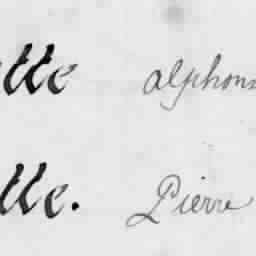 tte alphons
tte. Pierre